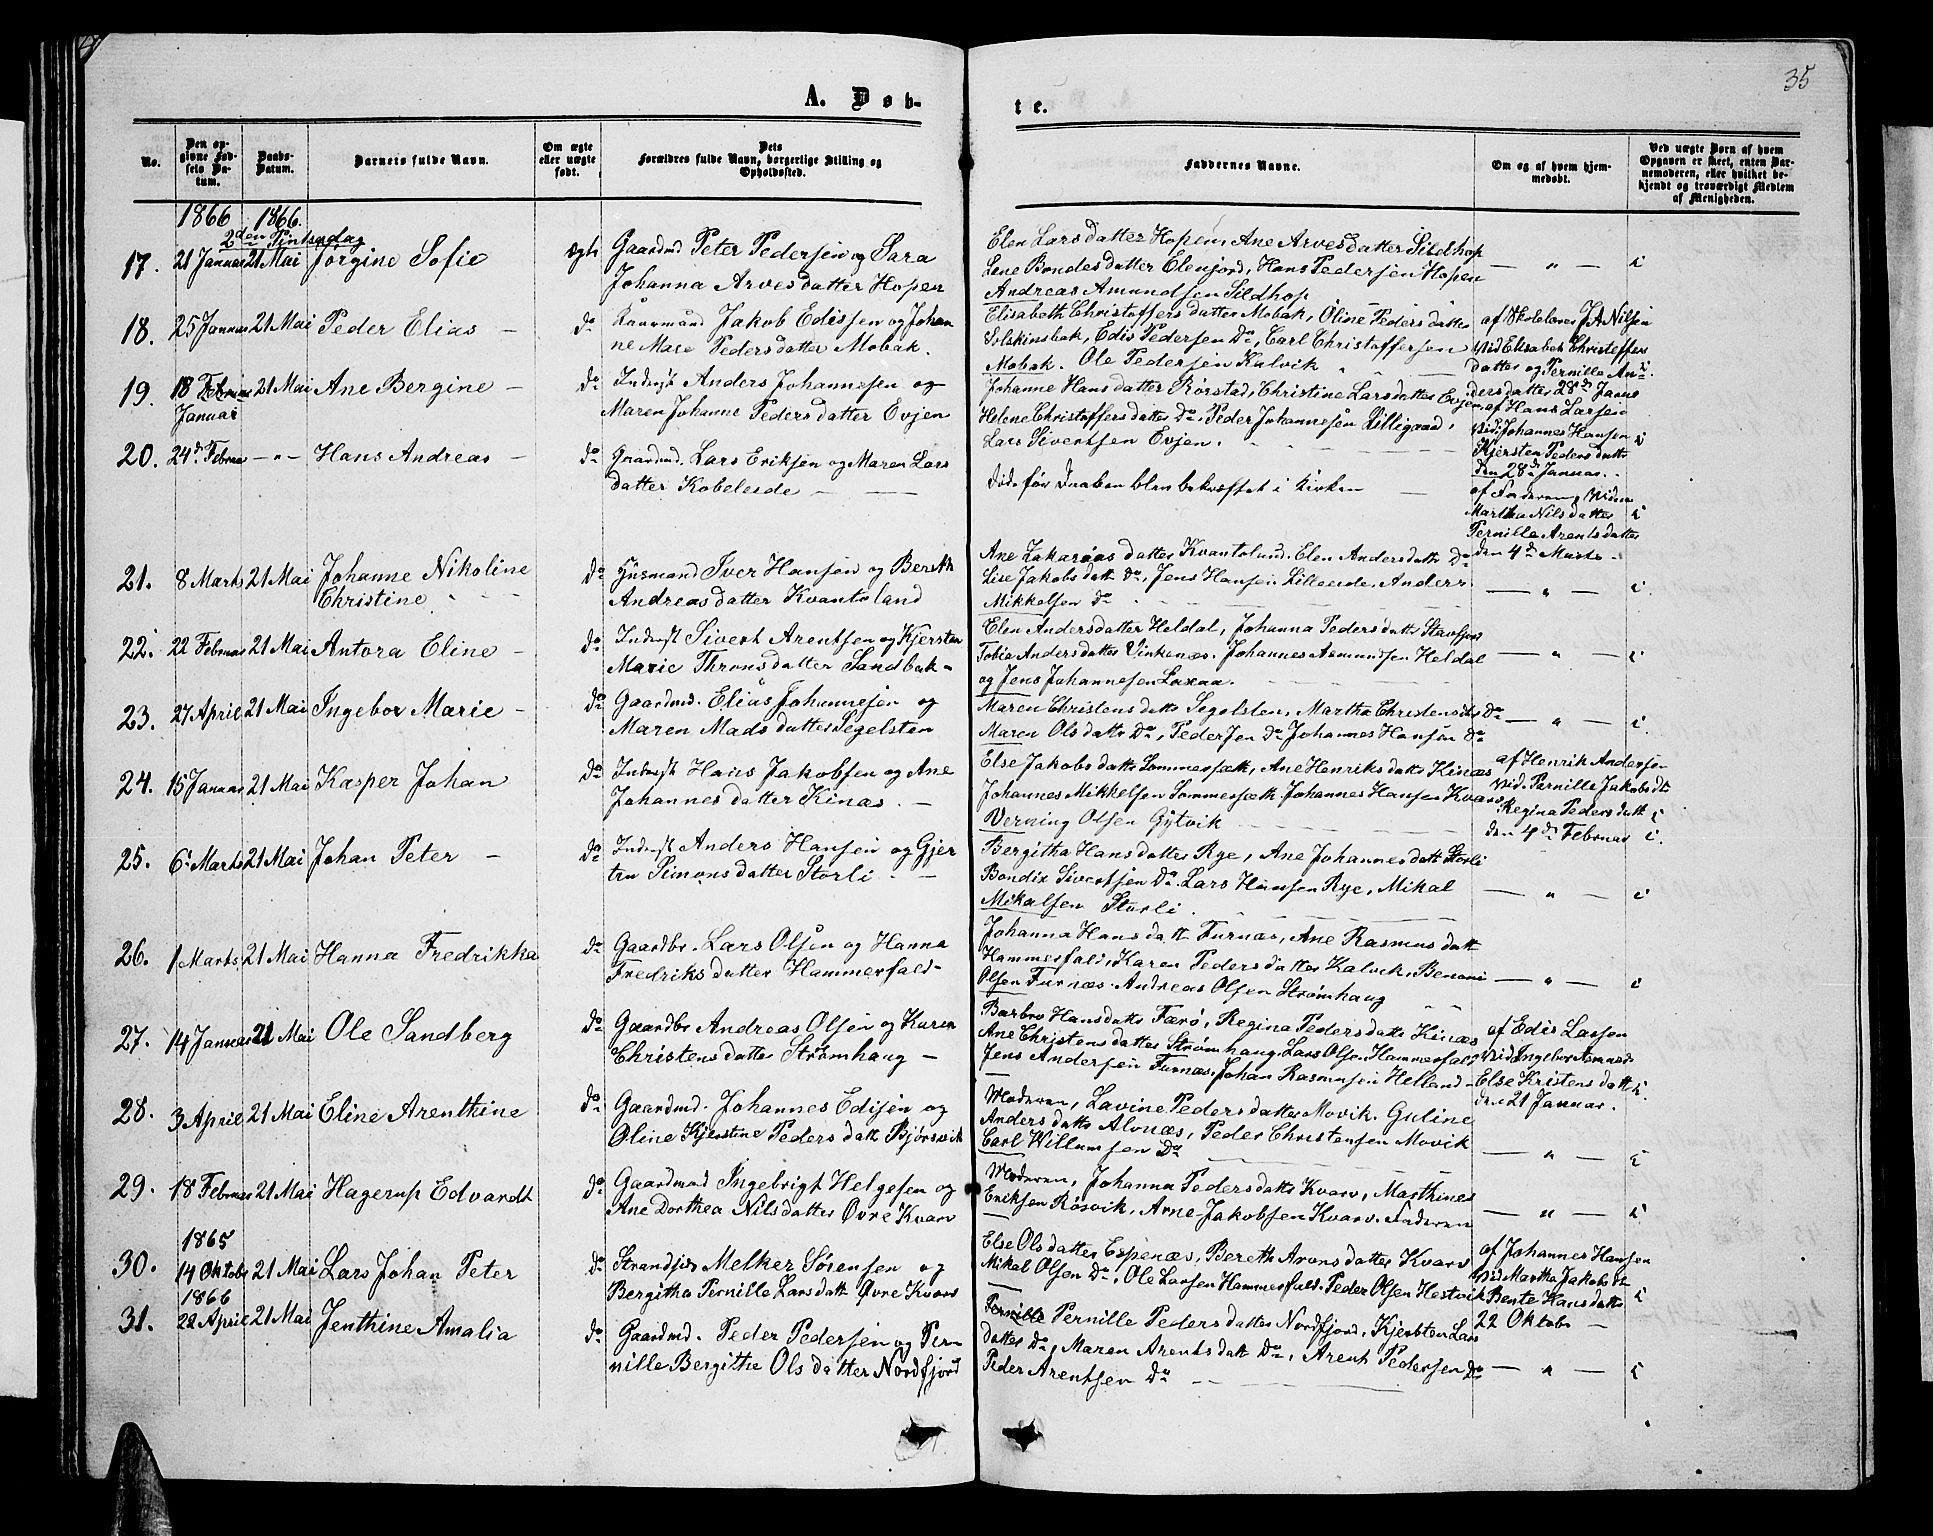 35
A. Døb-
te.
No.
Den opgivne Fødsels Datum.
Daabs-Datum.
Barnets fulde Navn.
Om ægte eller uægte født.
Dets Forældres fulde Navn, borgerlige Stilling og Opholdssted.
Faddernes Navne.
Om og af hvem hjemmedøbt.
Ved uægte Børn af hvem Opgaven er skeet, enten Barnemoderen, eller hvilket bekjendt og troværdigt Medlem af Menigheden.
1866 1866.
2den Pintsedag
17. 21 Januar 21 Mai Jørgine Sofie ægte Gaardmd Peter Pedersen og Sara
Johanna Arvesdatter Hopen
Elen Larsdatter Hopen, Ane Arvesdatter Sildhop
Lene Bondesdatter Elenjord, Hans Pedersen Hopen
Andreas Amundsen Sildhop
— " —
18. 25 Januar 21 Mai Peder Elias — do Jakob Edissen og Johan
ne Mare Pedersdatter Mobak.
Elisabeth Christoffersdatter Mobak, Oline Pedersdatter
Solskinsbak, Edis Pedersen Do, Carl Christoffersen
Mobak. Ole Pedersen Kalvik
af Skolelærer J. A. Nilsen
Vid Elisabet Christoffers
datter og Pernille An-
dersdatter 28de Januar
19. 18 Februar Januar 21 Mai Ane Bergine — do Inderst Anders Johannesen og
Maren Johanne Pedersdatter Evjen
Johanne Hansdatter Rørstad, Christine Larsdatter Evjen
Helene Christoffersdatter Do, Peder Johannesen Lilligaard,
Lars Sivertsen Evjen.
af Hans Larsen
Vid. Johannes Hansen
Kjersten Pedersdatt
den 28de Januar.
20. 24de Februar — " — Hans Andreas — do Gaardmd. Lars Eriksen og Maren Lars
datter Kobeleide
Døde før Daaben blev bekræftet i Kirken
af Faderen, Vidne
Martha Nilsdatter
Pernille Arentsdatter
den 4de Marts
21. 8 Marts 21 Mai Johanne Nikoline
Christine
do Husmand Iver Hansen og Bereth
Andreasdatter Kvantoland
Ane Zakariasdatter Kvantoland. Elen Andersdatt Do
Lise Jakobsdatt Do, Jens Hansen Lilleeide, Anders
Mikkelsen Do
— " —
22. 22 Februar 21 Mai Antora Eline — do Inderst Sivert Arentsen og Kjersten
Marie Thronsdatter Sandbak
Elen Andersdatter Heldal, Johanna Pedersdatt
Tobia Andersdatter Vinkenæs. Johannes Asmundsen Heldal
og Jens Johannesen Laxaa.
— " —
23. 27 April 21 Mai Ingebor Marie — do Gaardmd. Elias Johannesen og
Maren Madsdatter Segelsten
Maren Christensdatt Segelsten, Martha Christensdtr Do
Maren Olsdattr Do, Peder Jen Do Johannes Hansen Do
— " —
24. 15 Januar 21 Mai Kasper Johan do Inderst Hans Jakobsen og Ane
Johannesdatter Kinæs. —
Else Jakobsdatt Sommersæth, Ane Henriksdatt Kinæs
Johannes Mikkelsen Sommersæth. Johannes Hansen Kvarv
Verning Olsen Gytvik
af Henrik Andersen
Vid. Pernille Jakobsdt
Regina Pedersdatt
den 4de Februar
25. 6 Marts 21 Mai Johan Peter — do Inderst Anders Hansen og Gjer
tru Simonsdatter Storli. —
Bergitha Hansdatter Rye, Ane Johannesdatt Storli
Bondix Sivertsen Do Lars Hansen Rye, Mikal
Mikalsen Storli.
— " —
26. 1 Marts 21 Mai Hanna Fredrikka do Gaardbr. Lars Olsen og Hanna
Fredriksdatter Hammerfald
Johanna Hansdatt Furnæs, Ane Rasmusdatt
Hammerfald, Karen Pedersdatter Kalvik, Benoni
Olsen Furnæs. Andreas Olsen Strømhaug
— " —
27. 14 Januar 21 Mai Ole Sandberg do Gaardbr Andreas Olsen og Karen
Christensdatter Strømhaug —
Barbro Hansdatt Færø, Regina Pedersdatt Kinæs
Ane Christensdatter Strømhaug. Lars Olsen Hammerfald
Jens Andersen Furnæs. Johan Rasmusen Helland
af Edis Larsen
Vid Ingebor Asmunds
Else Kristensdatt
den 21 Januar.
28. 3 April 21 Mai Eline Arenthine do Gaardmd. Johannes Edisen og
Oline Kjerstine Pedersdatt Bjørsvik
Moderen, Lavine Pedersdatter Movik. Guline
Andersdatt Alvnæs, Peder Christensen Movik
Carl Willumsen Do
— " —
29. 18 Februar 21 Mai Hagerup Edvardt do Gaardmand Ingebrigt Helgesen og
Ane Dorthea Nilsdatter Øvre Kvarv
Moderen, Johanna Pedersdatt Kvarv, Marthines
Eriksen Røsvik, Arne Jakobsen Kvarv. Faderen
— " —
1865
30. 14 Oktobr 21 Mai Lars Johan Peter do Strandsid Melker Sørensen og
Bergitha Pernille Larsdatt Øvre Kvarv
Else Olsdatter Espenæs, Bereth Aronsdatter Kvarv
Mikal Olsen Do, Ole Larsen Hammerfald. Peder Olsen Hestvik
af Johannes Hansen
Vid Martha Jakobsdt
Bente Hansdatt
22 Oktobr —
1866
31. 22 April 21 Mai Jenthine Amalia do Gaardmd. Peder Pedersen og Per-
nille Bergithe Olsdatter Nordfjord
Pernille Pernille Pedersdatter Nordfjord, Kjersten Lars
datter Do, Maren Arentsdatt Do, Arent Pedersen Do
Peder Arentsen Do
— " —